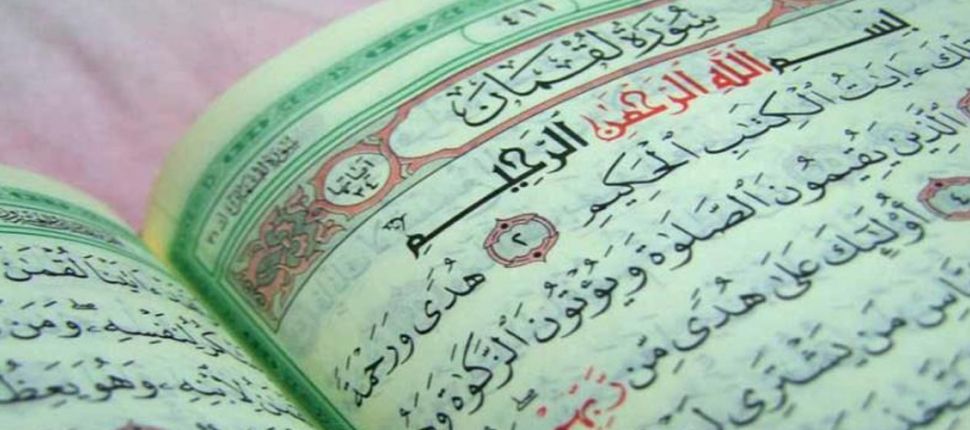 ٤١١
سُورَةُ لُقْمَانَ
آيَاتُهَا ٣٤
بِسْمِ اللَّهِ الرَّحْمَٰنِ الرَّحِيمِ
ءَايَٰتُ الْكِتَٰبِ الْحَكِيمِ ٢ هُدًى وَرَحْمَةً
الَّذِينَ يُقِيمُونَ الصَّلَوٰةَ وَيُؤْتُونَ الزَّكَوٰةَ
٤ أُولَٰئِكَ عَلَىٰ هُدًى مِّن رَّبِّهِمْ
مَن يَشْتَرِي
ءَاتَيْنَا لُقْمَٰنَ
لِنَفْسِهِ وَمَن
لِابْنِهِ وَهُوَ يَعِظُهُ